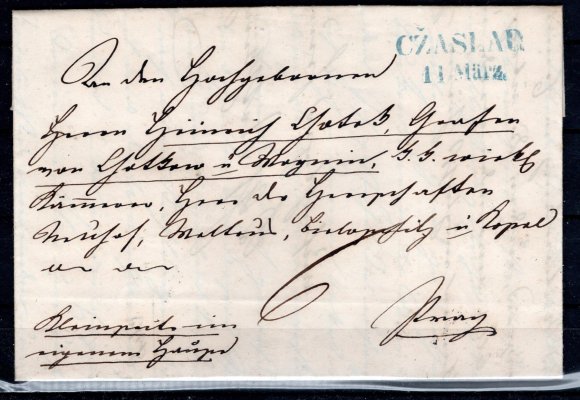 CŽASLAU
11 März
An den Hochgebornen
Herrn Heinrich Chotek, Grafen
von Chotkow u Wognin, K. K. wirkl
Kämmerer, Herr der Herrschaften
Neuhof, Weltrus, Bielohschitz u Kopal
6
Prag
Kleinseite im
eigenem Hause